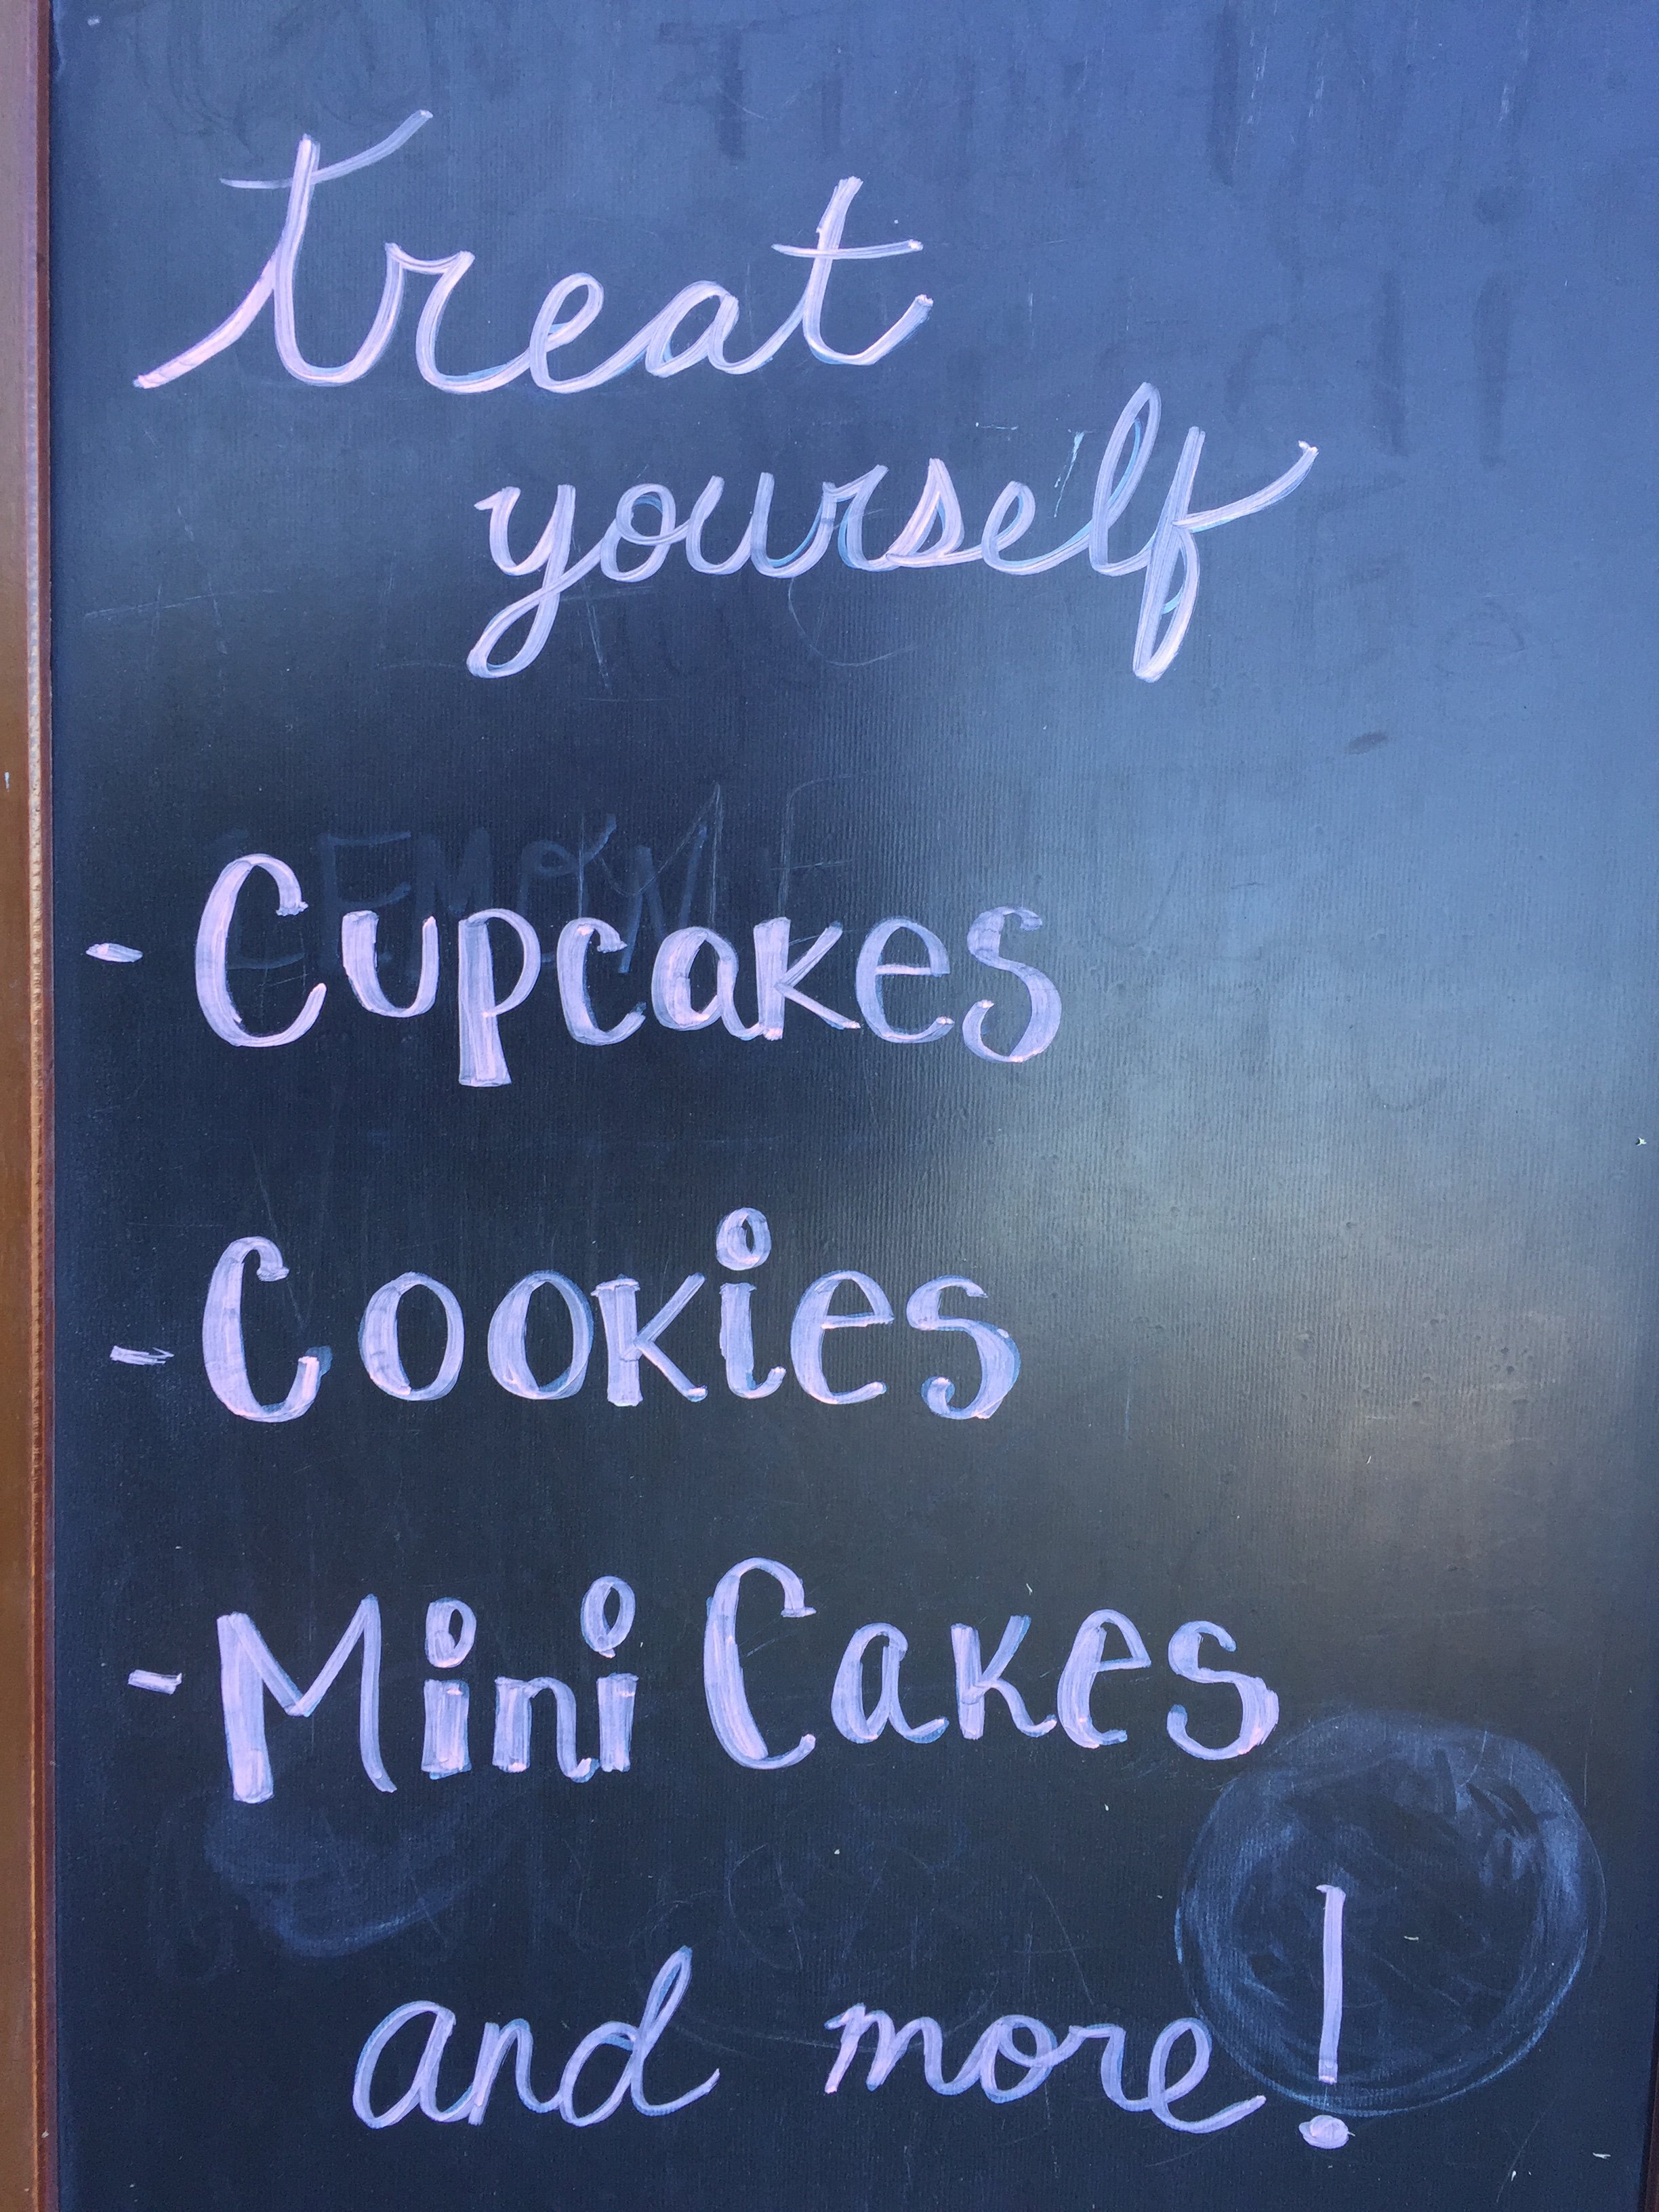 treat
yourself
- Cupcakes
- Cookies
- Mini Cakes
and more!